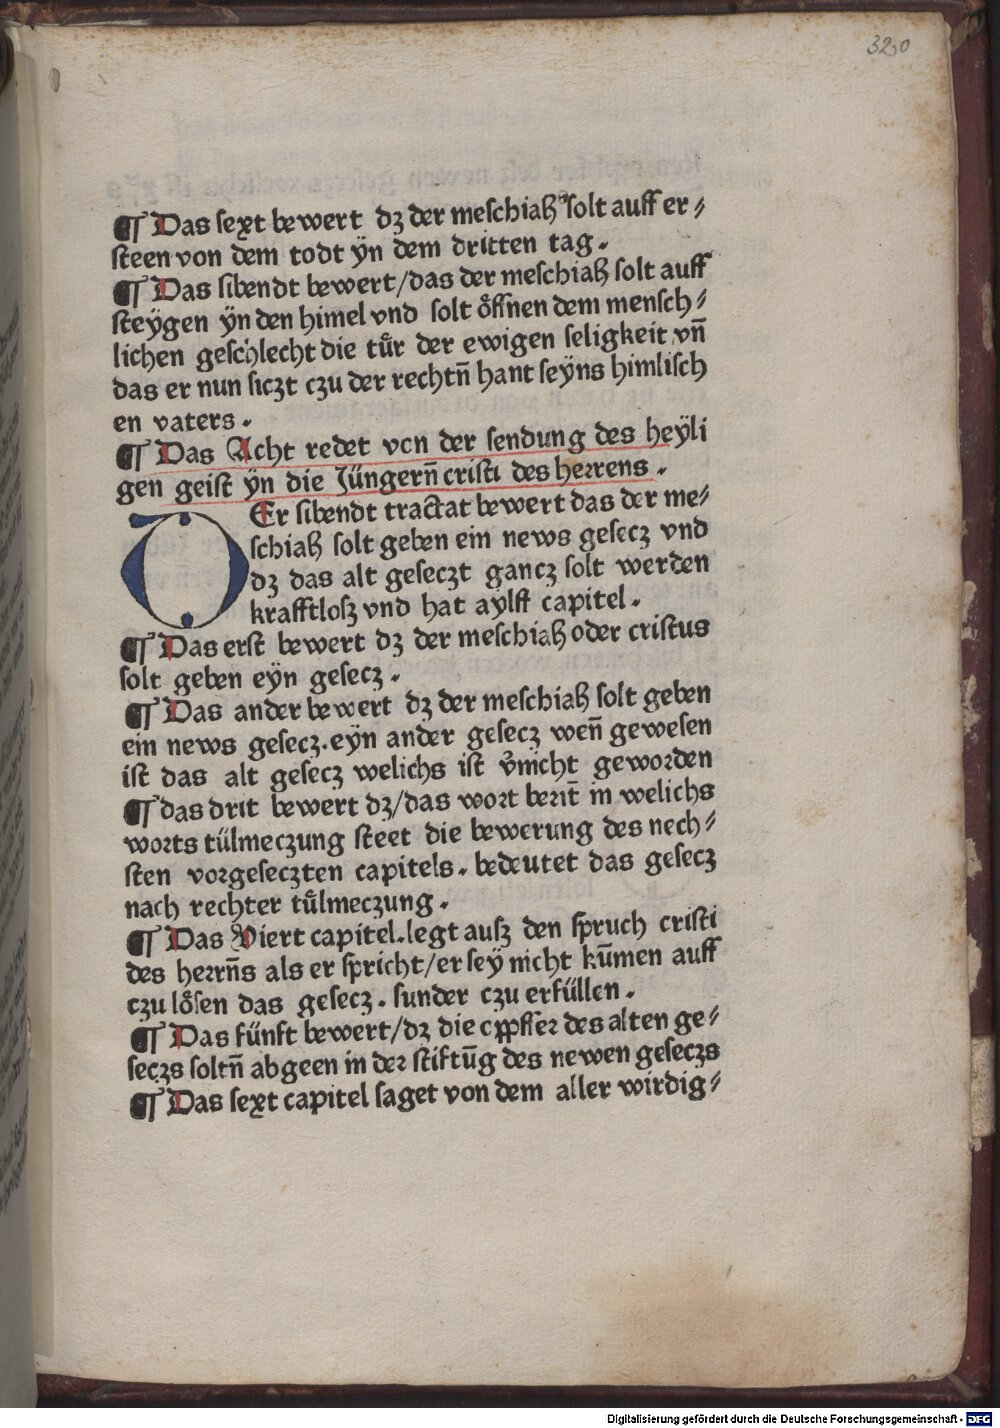 320
¶ Das sext bewert dʒ der meschiaß solt auff er⸗
steen von dem todt ÿn dem dritten tag.
¶ Das sibendt bewert/das der meschiaß solt auff
steÿgen ÿn den himel vnd solt oͤffnen dem mensch⸗
lichen geschlecht die tuͤr der ewigen seligkeit vn̄
das er nun siczt czu der rechtn̄ hant seÿns himlisch
en vaters.
¶ Das Acht redet von der sendung des heÿli
gen geist ÿn die Jüngern̄ cristi des herrens.
DEr sibendt tractat bewert das der me⸗
schiaß solt geben ein news gesecz vnd
dʒ das alt geseczt gancz solt werden
krafftlosz vnd hat aylff capitel.
¶ Das erst bewert dʒ der meschiaß oder cristus
solt geben eÿn gesecz.
¶ Das ander bewert dʒ der meschiaß solt geben
ein news gesecz. eÿn ander gesecz wen̄ gewesen
ist das alt gesecz welichs ist v̉nicht geworden
¶ das drit bewert dʒ/das wort berit̄ in welichs
worts tülmeczung steet die bewerung des nech⸗
sten vorgeseczten capitels. bedeutet das gesecz
nach rechter tuͤlmeczung.
¶ Das Viert capitel. legt ausz den spruch cristi
des herrn̄s als er spricht/er sey nicht kūmen auff
czu loͤsen das gesecz. sunder czu erfüllen.
¶ Das fünft bewert/dʒ die des alten ge⸗
seczs soltn̄ abgeen in der stiftūg des newen geseczs
¶ Das sext capitel saget von dem aller wirdig⸗
Digitalisierung gefördert durch die Deutsche Forschungsgemeinschaft - DFG